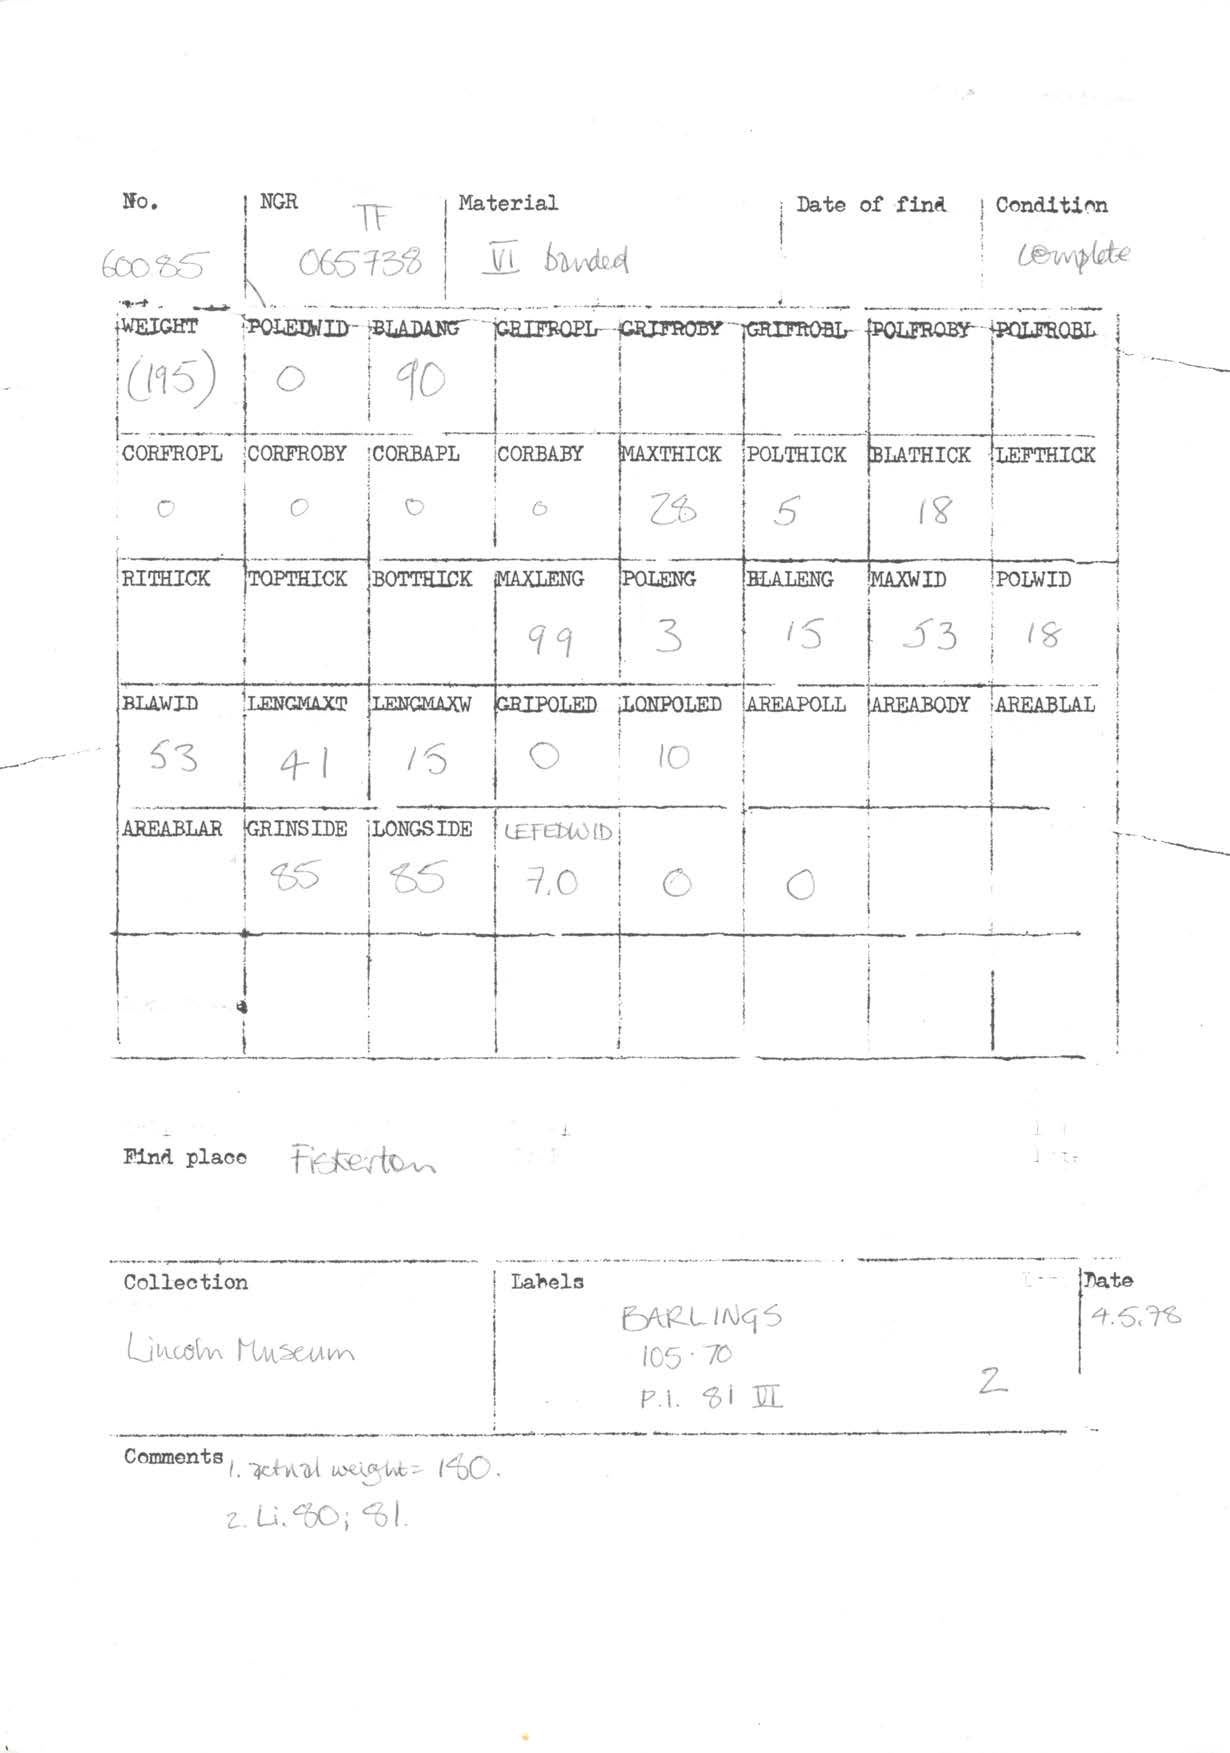 No. NGR Material Date of find Condition
TF
60085 065738 VI banded complete
WEIGHT POLEDWID BLADANG GRIFROPL GRIFROBY GRIFROBL POLFROBY POLFROBL
(195) 0 90
CORFROPL CORFROBY CORBAPL CORBABY MAXTHICK POLTHICK BLATHICK LEFTHICK
0 0 0 0 28 5 18
RITHICK TOPTHICK BOTTHICK MAXLENG POLENG BLALENG MAXWID POLWID
99 3 15 53 18
BLAWID LENGMAXT LENGMAXW GRIPOLED LONPOLED AREAPOLL AREABODY AREABLAL
53 41 15 0 10
AREABLAR GRINSIDE LONGSIDE LEFEDWID
85 85 7.0 0 0
Find place Fiskerton
Collection Labels Date
BARLINGS 4.5.78
Lincoln Museum 105.70
P.1. 81 VI 2
Comments 1. actual weight = 180.
2. Li. 80; 81.